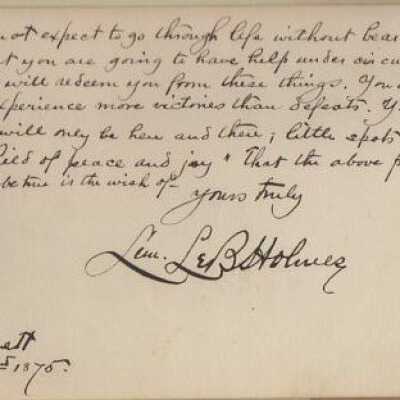 not expect to go through life without bear
t you are going to have help under circu
will redeem you from these things. You
xperience more victories than defeats. Y
will only be here and there; little spots
ield of peace and joy" That the above p
be true is the wish of-
yours truly
Lem. LeB Holmes
ett
1875.